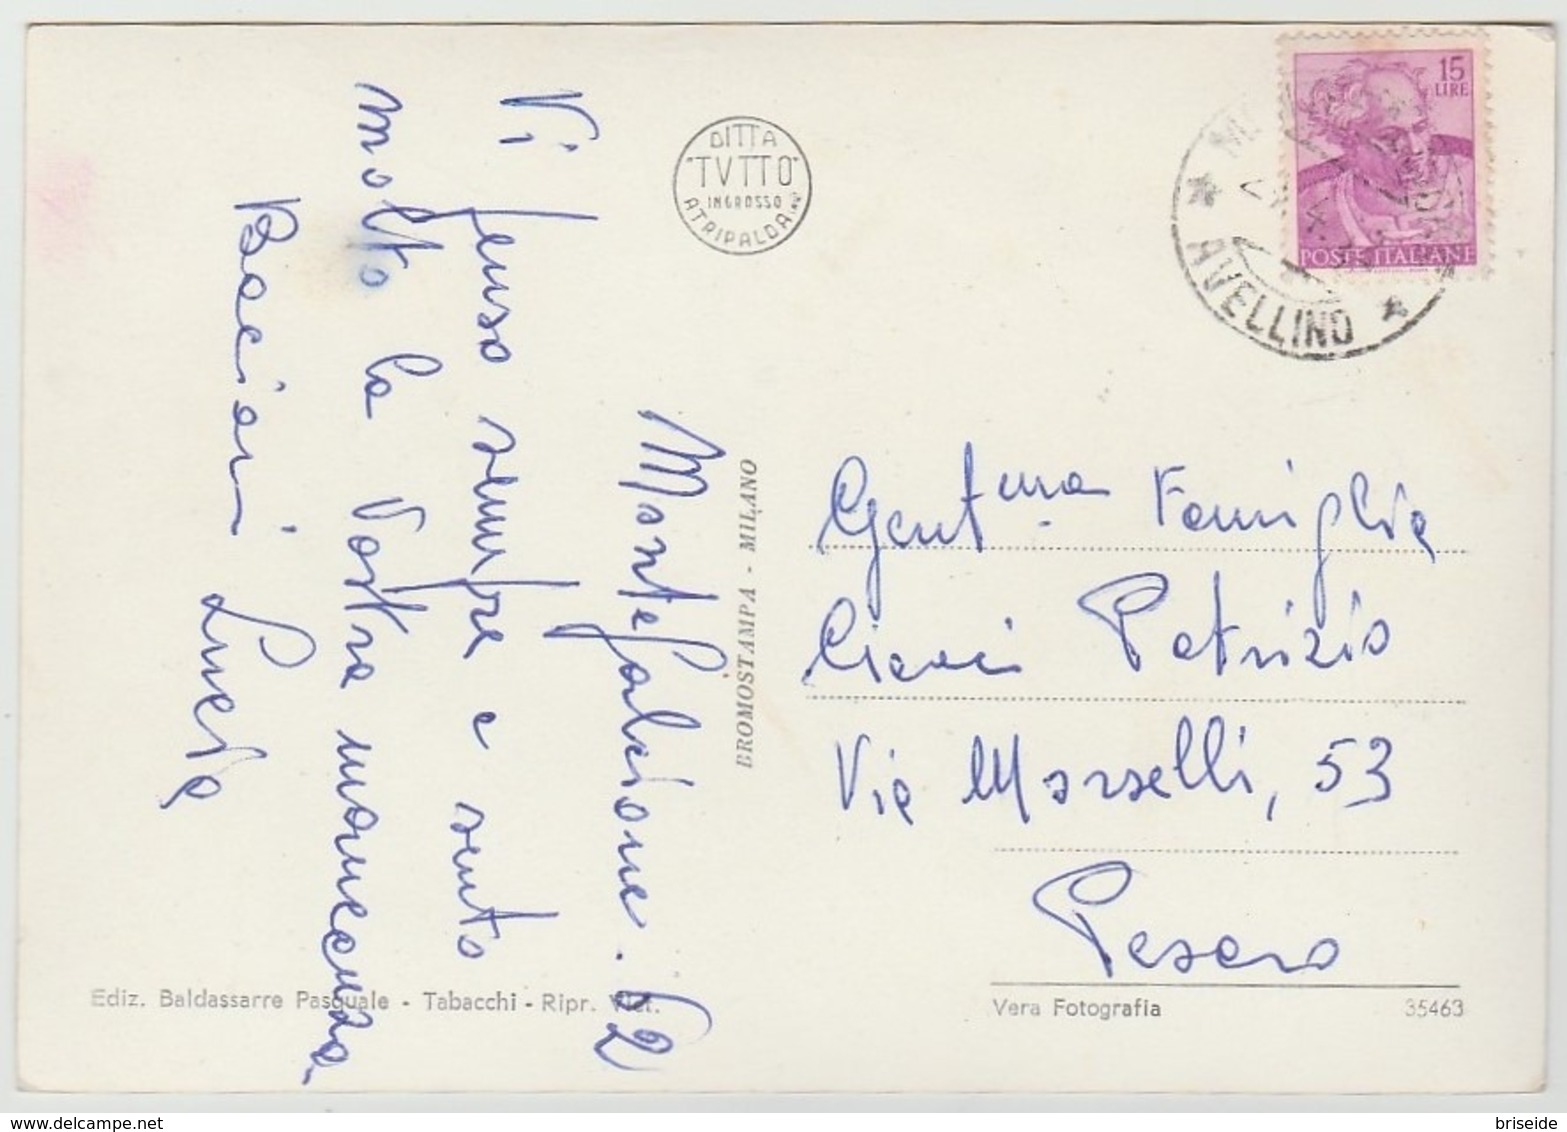 Montefalcione. 62
Vi penso sempre e sento
molto la Vostra mancanza.
Bacioni Lucia
DITTA
"TVTTO"
INGROSSO
ATRIPALDA
BROMOSTAMPA - MILANO
15
LIRE
POSTE ITALIANE
AVELLINO
Gent.ma Famiglia
Ciacci Patrizio
Via Morselli, 53
Pesaro
Ediz. Baldassarre Pasquale - Tabacchi - Ripr. Viet.
Vera Fotografia
35463
briseide